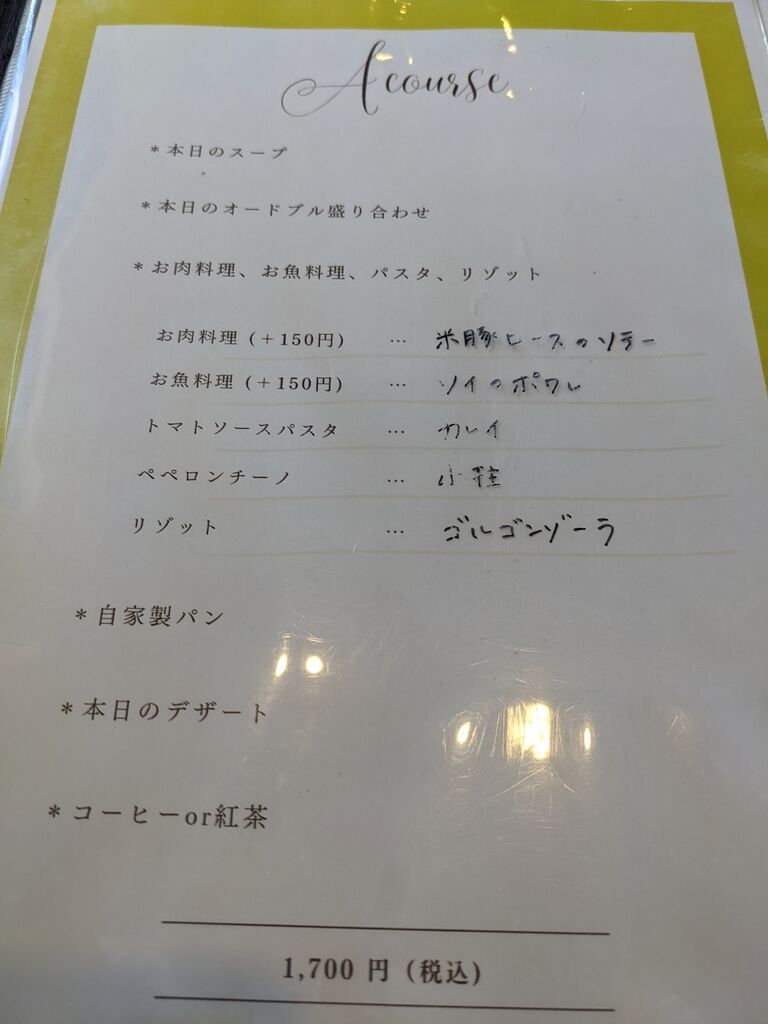 A course
*本日のスープ
*本日のオードブル盛り合わせ
*お肉料理、お魚料理、パスタ、リゾット
お肉料理 (+150円) … 米豚ヒースのソテー
お魚料理 (+150円) … ソイのポワレ
トマトソースパスタ … カレイ
ペペロンチーノ … 小柱
リゾット … ゴルゴンゾーラ
*自家製パン
*本日のデザート
*コーヒーor紅茶
1,700 円 (税込)